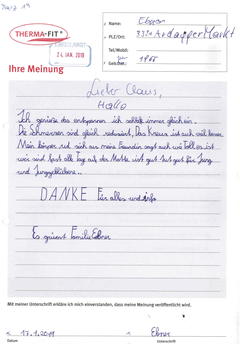 März 19
THERMA-FIT®
24. JAN. 2019
Name: Ebner
PLZ/Ort: 3320 Ardagger Markt
Tel/Mobil:
Geb.Dat.: 1955
Ihre Meinung
Lieber Claus,
Hallo
Ich genieße das entspannen ich schlafe immer gleich ein.
Die Schmerzen sind gleich reduziert, Das Kreuz ist auch viel besser
Mein Körper ruf sich aus meine Freundin sagt auch wie Toll es ist
wir sind fast alle Tag auf der Matte ist gut tut gut für Jung
und Junggebliebene..
DANKE für alles und Info
Es grüsst Familie Ebner
Mit meiner Unterschrift erkläre ich mich einverstanden, dass meine Meinung veröffentlicht wird.
17.1.2019 Ebner
Datum Unterschrift